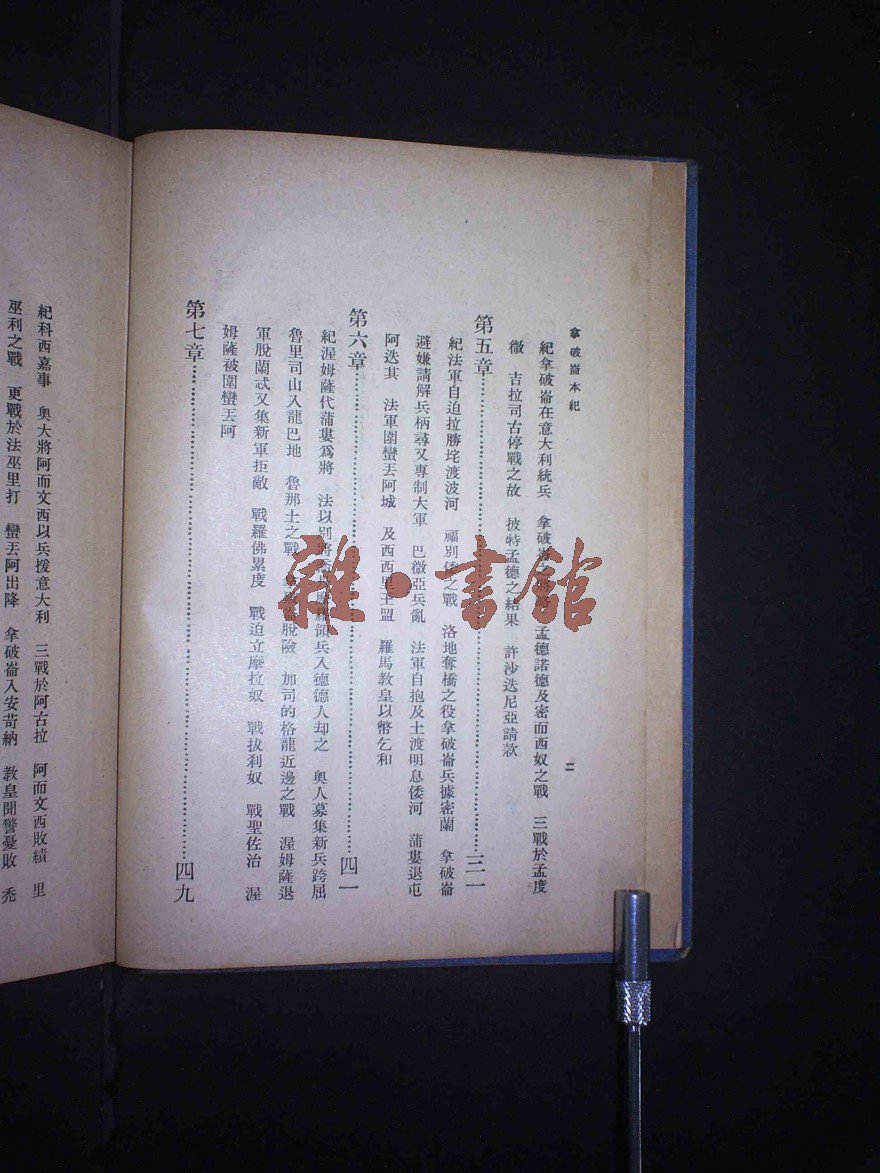 拿破崙本紀
二
紀拿破崙在意大利統兵　拿破崙 孟德諾德及密而西奴之戰　三戰於孟度
微　吉拉司古停戰之故　披特孟德之結果　許沙迭尼亞請款
第五章 三一
紀法軍自迫拉勝垞渡波河　福別倭之戰　洛地奪橋之役拿破崙兵據密蘭　拿破崙
避嫌請解兵柄尋又專制大軍　巴微亞兵亂　法軍自抱及土渡明息倭河　蒲婁退屯
阿迭其　法軍圍蠻丟阿城　及西西里王盟　羅馬教皇以幣乞和
第六章 四一
紀渥姆薩代蒲婁爲將　法以別將 領兵入德德人却之　奧人募集新兵跨屈
魯里司山入龍巴地　魯那士之戰　脫險　加司的格龍近邊之戰　渥姆薩退
軍脫蘭忒又集新軍拒敵　戰羅佛累度　戰迫立摩拉奴　戰拔刹奴　戰聖佐治　渥
姆薩被圍蠻丟阿
第七章 四九
紀科西嘉事　奧大將阿而文西以兵援意大利　三戰於阿古拉　阿而文西敗績　里
巫利之戰　更戰於法巫里打　蠻丟阿出降　拿破崙入安苛納　教皇聞警憂敗　禿
雜·書館